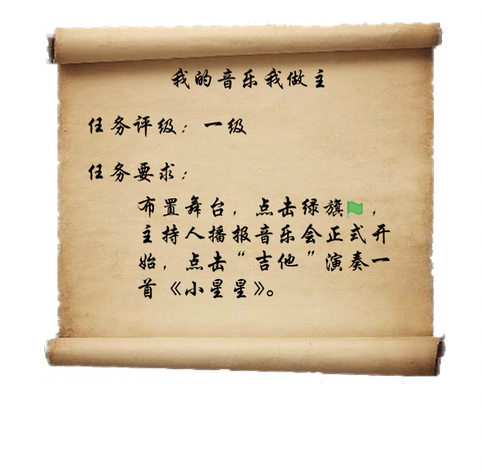 我的音乐我做主
任务评级：一级
任务要求：
布置舞台，点击绿旗，
主持人播报音乐会正式开
始，点击“吉他”演奏一
首《小星星》。